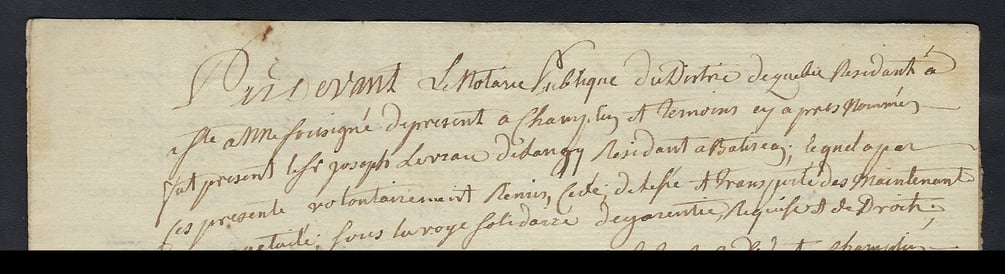 Pardevant Le Notaire Publique du Distric de quebec Residant a
ste anne soussigné depresent a Champlin et Temoins cy apres Nommés
fut present le Sr joseph Levrau de Langy Residant a Batiscan; lequel a par
ces presente volontairement Remis, Cédé, delesse et Transporté des Maintenant
sous la voye solidaire de garentie, Requise et de Droit;
Champlin